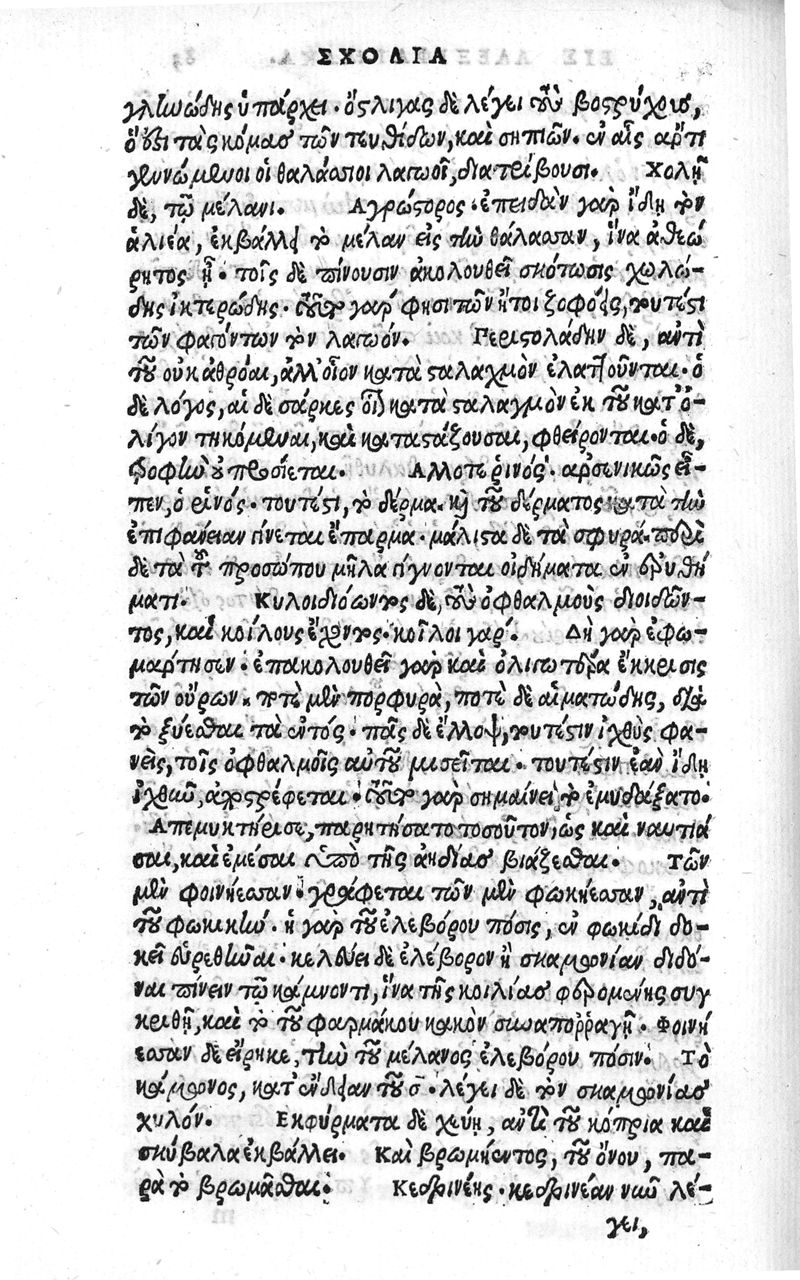 ΣΧΟΛΙΑ
γλιώδης ὑπάρχει· ὄστλιγας δὲ λέγει τοὺς βοστρύχους,
ὅ ἐστι τὰς κόμας τῶν τευθίδων, καὶ σηπιῶν. ἐν αἷς ἄρτι
γενόμενοι οἱ θαλάσσιοι λαγωοὶ, διατρίβουσι. Χολῇ
δὲ, τῷ μέλανι. Αγρώστορος· ἐπειδὰν γὰρ ἴδῃ τὸν
ἁλιέα, ἐκβάλλει τὸ μέλαν εἰς τὴν θάλασσαν, ἵνα ἀθεώ
ρητος ᾖ· τοῖς δὲ πίνουσιν ἀκολουθεῖ σκότωσις χολώ-
δης ἰκτερώδης· τοῦτο γάρ φησι τῶν ἤτοι ζοφόεις, τουτέστι
τῶν φαγόντων τὸν λαγωόν. Περιστολάδην δὲ, ἀντὶ
τοῦ οὐκ ἀθρόαι, ἀλλ' οἷον κατὰ σταλαγμὸν ἐλαττοῦνται· ὁ
δὲ λόγος, αἱ δὲ σάρκες οἷον κατὰ σταλαγμὸν ἐκ τοῦ κατ' ὀ-
λίγον τηκόμεναι, καὶ καταστάζουσαι, φθείρονται· ὁ δὲ,
τροφὴν οὐ προσίεται. Αλλοτε ῥινός· ἀρσενικῶς εἶ-
πεν, ὁ ῥινός· τουτέστι, τὸ δέρμα. καὶ τοῦ δέρματος κατὰ τὴν
ἐπιφάνειαν γίνεται ἔπαρμα· μάλιστα δὲ τὰ σφυρά. περὶ
δὲ τὰ τοῦ προσώπου μῆλα γίγνονται οἰδήματα ἐν ἐρυθή
ματι. Κυλοιδιόωντος δὲ, τοὺς ὀφθαλμοὺς διοιδῶν-
τος, καὶ κοίλους ἔχοντος· κοῖλοι γάρ. Δὴ γὰρ ἐφω-
μάρτησεν· ἐπακολουθεῖ γὰρ καὶ ὀλιγωτέρα ἔκκρισις
τῶν οὔρων· ποτὲ μὲν πορφυρᾶ, ποτὲ δὲ αἱματώδης, διὰ
τὸ ξύεσθαι τὰ ἐντός· πᾶς δὲ ἔλλοψ, τουτέστιν ἰχθὺς φα-
νεὶς, τοῖς ὀφθαλμοῖς αὐτοῦ μισεῖται. τουτέστιν ἐὰν ἴδῃ
ἰχθὺν, ἀποστρέφεται· τοῦτο γὰρ σημαίνει τὸ ἐμυσάξατο·
Απεμυκτήρισε, παρῃτήσατο τοσοῦτον, ὡς καὶ ναυτιά
σαι, καὶ ἐμέσαι ὑπὸ τῆς ἀηδίας βιάζεσθαι. τῶν
μὲν φοινήεσσαν· γράφεται τῶν μὲν φωκήεσσαν, ἀντὶ
τοῦ φωκικήν. ἡ γὰρ τοῦ ἐλεβόρου πόσις, ἐν φωκίδι δο-
κεῖ εὑρεθῆναι· κελεύει δὲ ἐλέβορον ἢ σκαμωνίαν διδό-
ναι πίνειν τῷ κάμνοντι, ἵνα τῆς κοιλίας φερομένης συγ
κριθῇ, καὶ τὸ τοῦ φαρμάκου κακὸν συναπορραγῇ· Φοινή
εσσαν δὲ εἴρηκε, τὴν τοῦ μέλανος ἐλεβόρου πόσιν. Τὸ
κάμωνος, κατ' ἔνδειαν τοῦ σ· λέγει δὲ τὸν σκαμωνίας
χυλόν. Εκφύρματα δὲ χεύῃ, ἀντὶ τοῦ κόπρια καὶ
σκύβαλα ἐκβάλλει. Καὶ βρωμήεντος, τοῦ ὄνου, πα-
ρὰ τὸ βρωμᾶσθαι. Κεδρινέης· κεδρινέαν νῦν λέ-
γει,